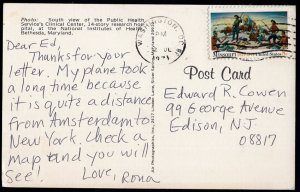 Photo: South view of the Public Health
Service's Clinical Center, 14-story research hos-
pital, at the National Institutes of Health,
Bethesda, Maryland.
Dear Ed,
Thanks for your
letter. My plane took
a long time because
it is quite a distance
from Amsterdam to
New York. Check a
map and you will
see! Love, Rona
WASHINGTON, D.C.
PM
1971
Missouri
United States
Post Card
Edward R. Cowen
99 George Avenue
Edison, N.J.
08817